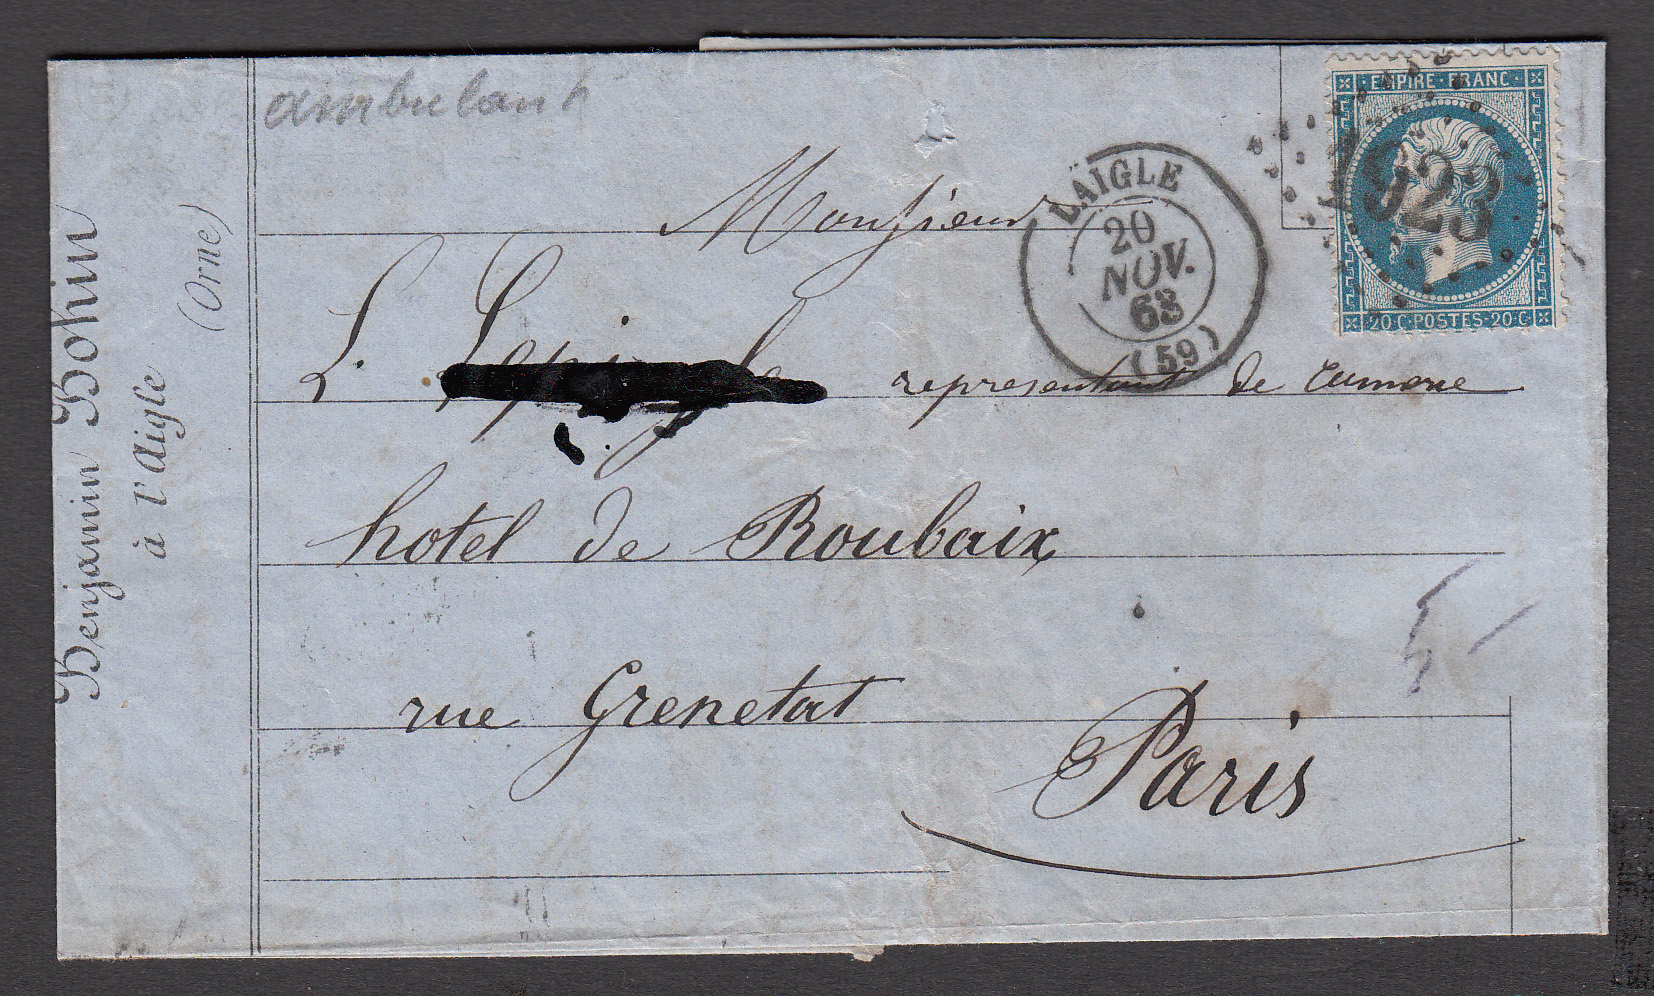 ambulant
EMPIRE · FRANC ·
1923
20 C · POSTES · 20 · C
LAIGLE
20
NOV.
63
(59)
Monsieur
L. representant de
hotel de Roubaix
rue Grenetat
Paris
5-
Benjamin Bohin
à l'Aigle
(Orne)